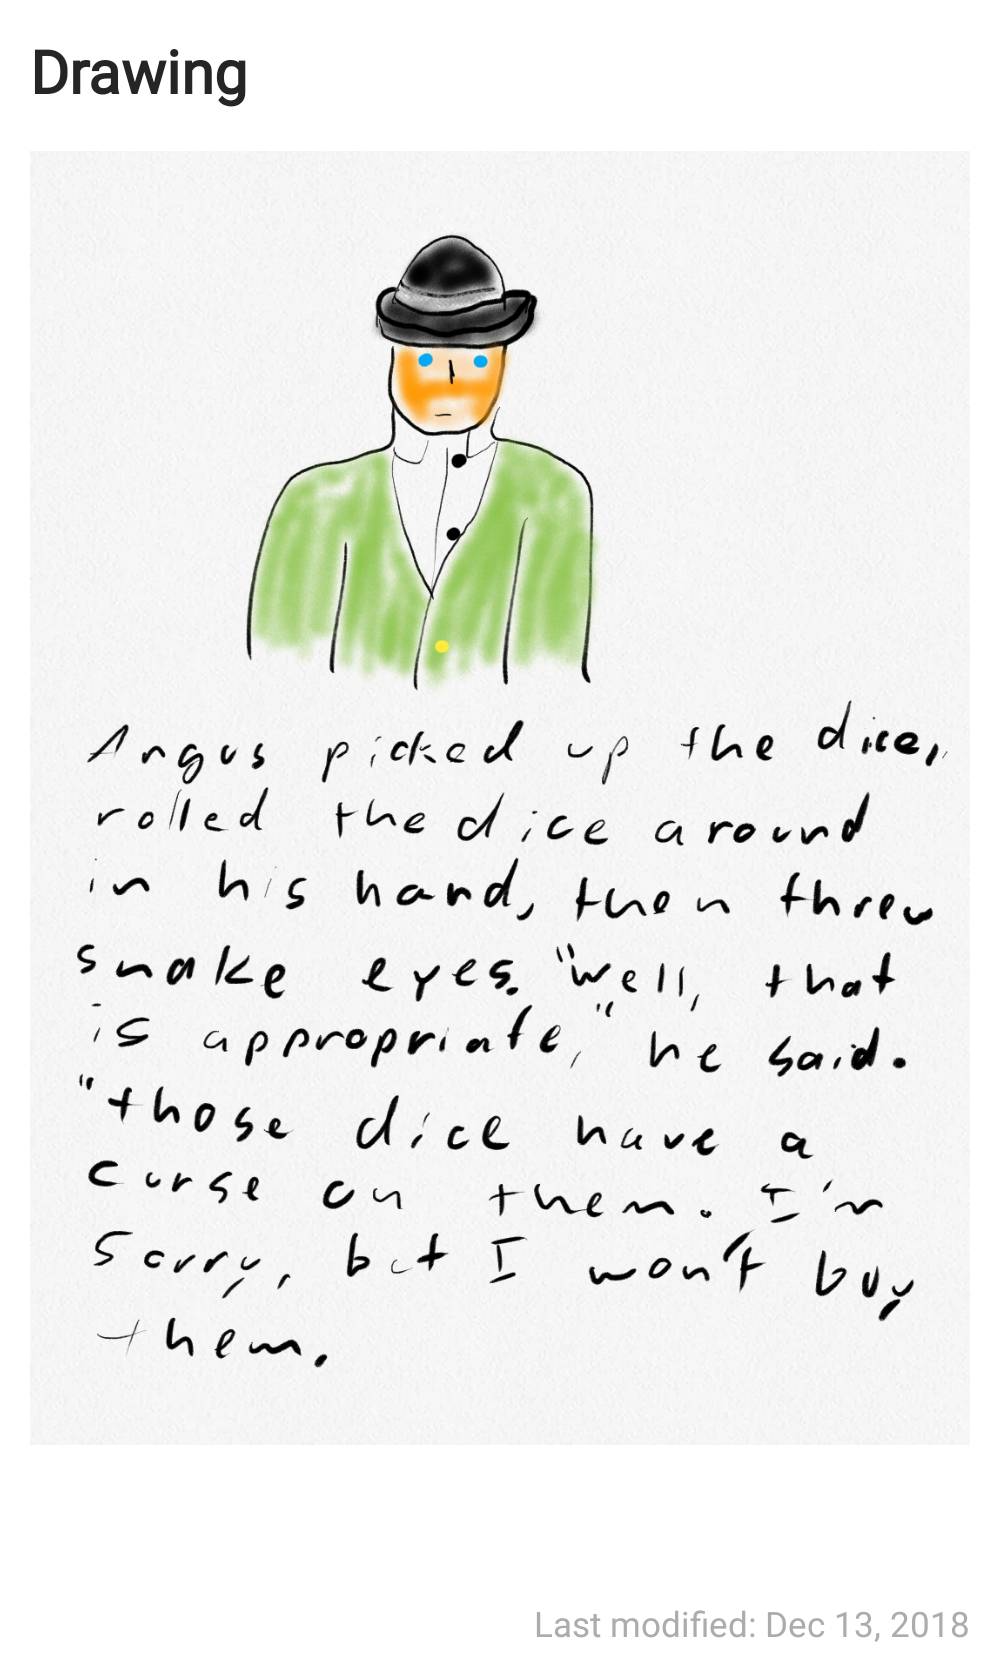 Drawing
Angus picked up the dice,
rolled the dice around
in his hand, then threw
snake eyes. "Well, that
is appropriate," he said.
"those dice have a
curse on them. I'm
sorry, but I won't buy
them.
Last modified: Dec 13, 2018